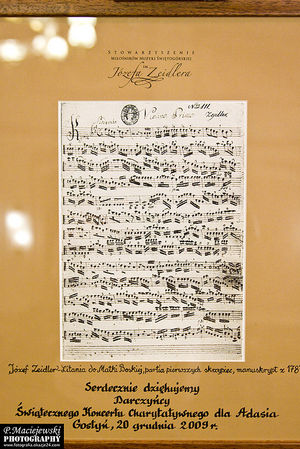 STOWARZYSZENIE
MIŁOŚNIKÓW MUZYKI ŚWIĘTOGÓRSKIEJ
im.
Józefa Zeidlera
No: III.
Violino Primo
Józef Zeidler- Litania do Matki Boskiej, partia pierwszych skrzypiec, manuskrypt z 178
Serdecznie dziękujemy
Darczyńcy
Świątecznego Koncertu Charytatywnego dla Adasia
Gostyń, 20 grudnia 2009 r.
P.Maciejewski
PHOTOGRAPHY
www.fotografia.okazje24.com